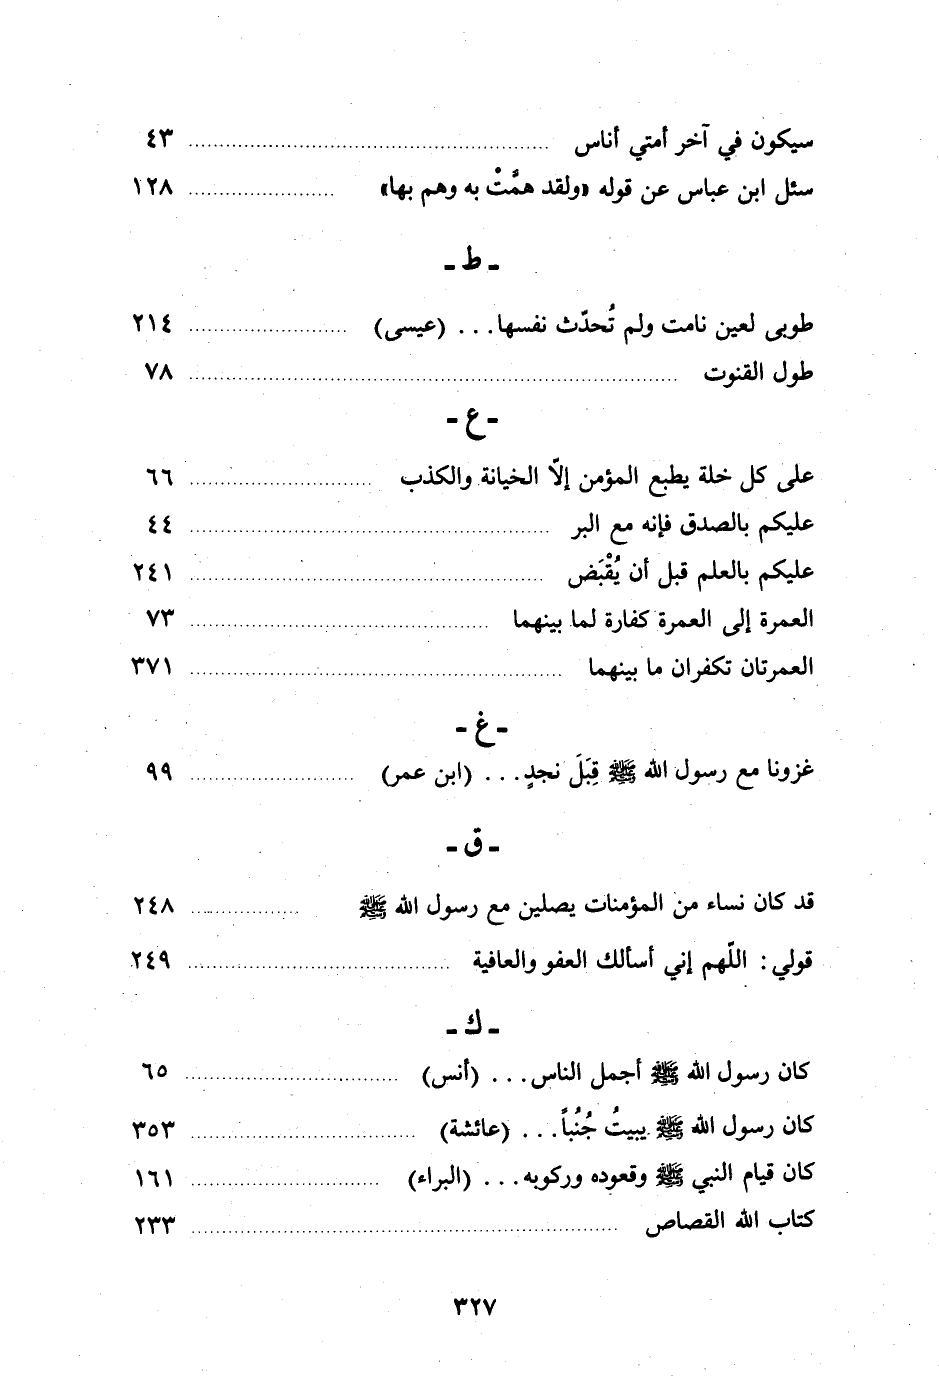 سيكون في آخر أمتي أناس ........ ٤٣
سئل ابن عباس عن قوله «ولقد همَّتْ به وهم بها» ........ ١٢٨
- ط -
طوبى لعين نامت ولم تُحدّث نفسها... (عيسى) ........ ٢١٤
طول القنوت ........ ٧٨
- ع -
على كل خلة يطبع المؤمن إلّا الخيانة والكذب ........ ٦٦
عليكم بالصدق فإنه مع البر ........ ٤٤
عليكم بالعلم قبل أن يُقْبَض ........ ٢٤١
العمرة إلى العمرة كفارة لما بينهما ........ ٧٣
العمرتان تكفران ما بينهما ........ ٣٧١
- غ -
غزونا مع رسول الله ﷺ قِبَلَ نجدٍ... (ابن عمر) ........ ٩٩
- ق -
قد كان نساء من المؤمنات يصلين مع رسول الله ﷺ ........ ٢٤٨
قولي: اللّهم إني أسألك العفو والعافية ........ ٢٤٩
- ك -
كان رسول الله ﷺ أجمل الناس... (أنس) ........ ٦٥
كان رسول الله ﷺ يبيتُ جُنُباً... (عائشة) ........ ٣٥٣
كان قيام النبي ﷺ وقعوده وركوبه... (البراء) ........ ١٦١
كتاب الله القصاص ........ ٢٣٣
٣٢٧